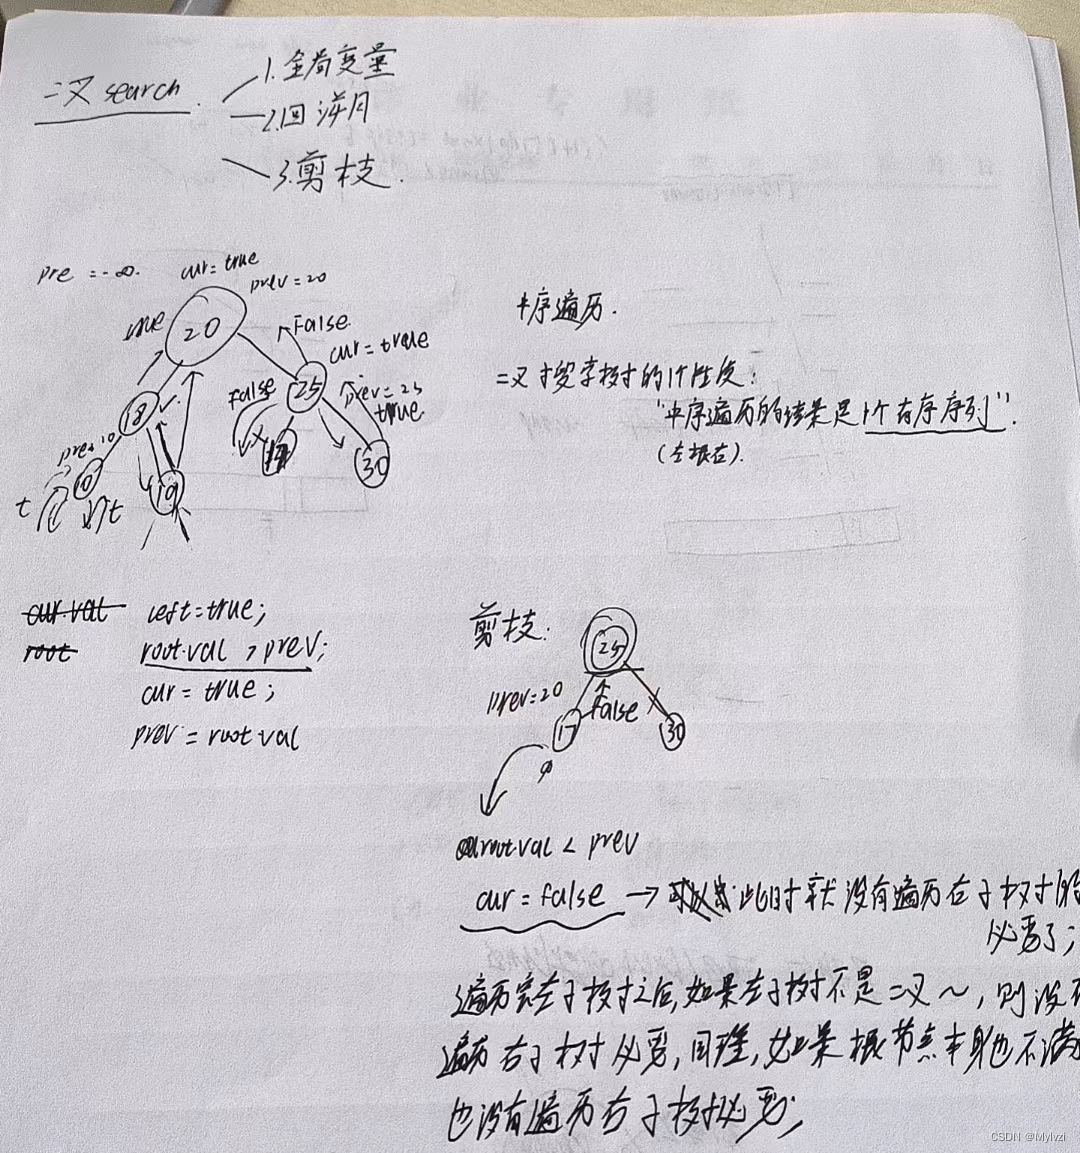 二叉 search
1. 全局变量
2. 回溯
3. 剪枝.
pre = -∞.
cur = true
prev = 20
true
20
False
cur = true
False
25
prev = 25
true
18
prev
10
19
30
t
t
中序遍历.
二叉搜索树的1个性质:
"中序遍历的结果是1个有序序列".
(左根右).
cur.val
left = true;
root
root.val > prev;
cur = true;
prev = root.val
剪枝.
25
prev = 20
false
17
30
root.val < prev
cur = false → 此时就没有遍历右子树的
必要了;
遍历完左子树之后, 如果左子树不是二叉~, 则没有
遍历右子树必要, 同理, 如果根节点本身也不满
也没有遍历右子树必要;
CSDN @Mylvzi